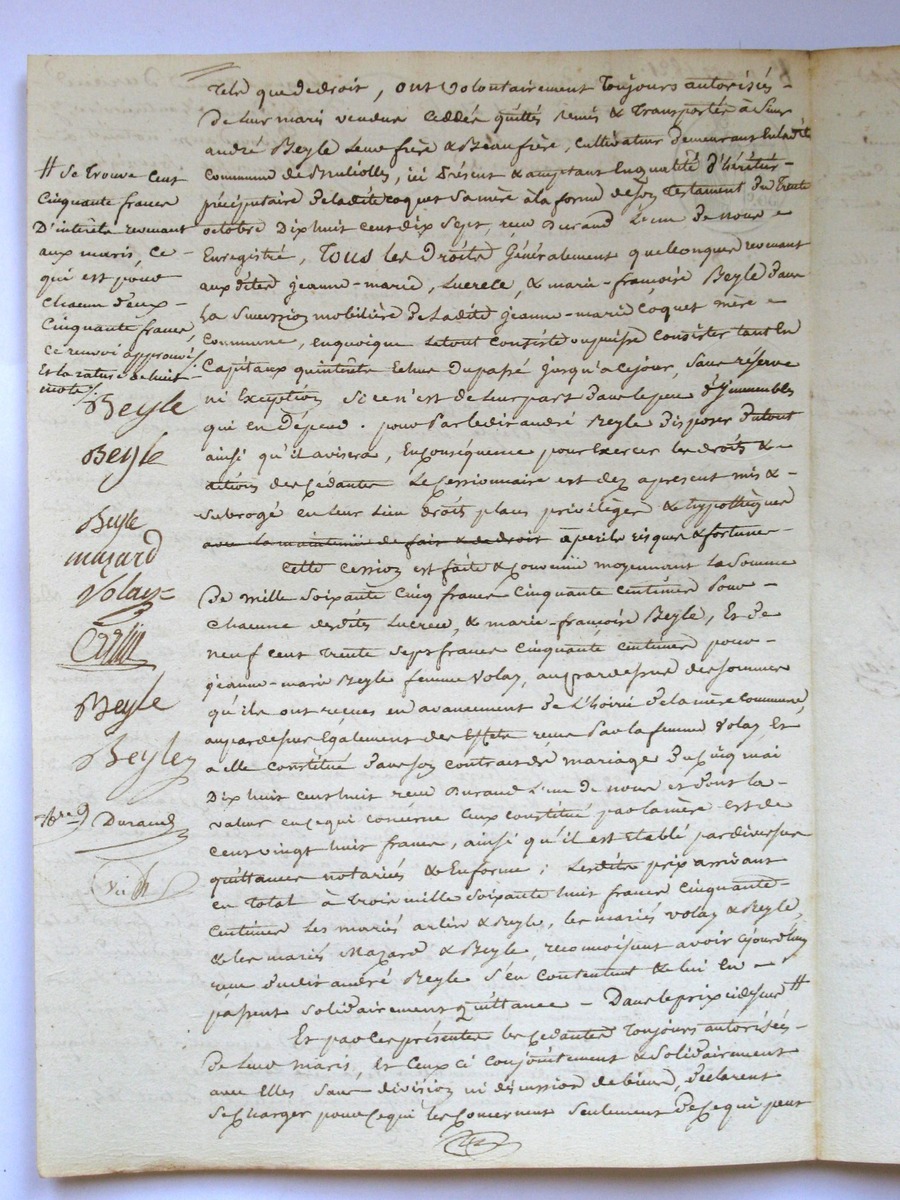 telr que de droit, ont volontairement toujours autorisés
de leur maris vendu cédée quitté remis & transportée à Sieur
andré Beyle leur frère & Beaufrère, cultivateur demeurant en ladite
commune de , ici présent & acceptant en qualité d'héritier
préciputaire de ladite coquet sa mère à la forme de son testament du trente
octobre dix huit cent dix sept, reçu Durand l'un de nous
Enregistré, tous les droits généralement quelconques revenant
auxdites jeanne-marie, Lucrece, & marie-françoise Beyle dans
la succession mobilière de ladite jeanne-marie coquet mère
commune, en quoique le tout consiste ou puisse consister tant en
capitaux qu'intérêts échus du passé jusqu'à ce jour, sans réserve
ni Exception si ce n'est de leur part dans le peu d'Immeubles
qui en dépend. pour par ledit andré Beyle disposer du tout
ainsi qu'il avisera, En conséquence pour exercer les droits &
actions des cédantes le cessionnaire est dez apresent mis &
subrogé en leur lieu droits place privilèges & hypothèques
avec la maintenue de fait & de droit à peril risques & fortune
Cette cession est faite & convenue moyennant la somme
De mille soixante cinq francs cinquante centimes pour
chacune desdites Lucrece, & marie-françoise Beyle, Et de
neuf cent trente sept francs cinquante centimes pour
jeanne-marie Beyle femme Volay, au pardessus des sommes
qu'ils ont reçues en avancement de l'hoirie de la mère commune
au pardessus également des effets reçus par la femme Volay, Et
a elle constitué dans son contrat de mariage du cinq mai
Dix huit cent huit reçu Durand l'un de nous et dont la
valeur en ce qui concerne ceux constitué par la mère est de
cent vingt huit francs, ainsi qu'il est établi par diverses
quittances notariés & En forme; Lesdits prix arrivant
en total à trois mille soixante huit francs cinquante
centimes Les mariés arlin & Beyle, les mariés Volay & Beyle,
& les mariés Mazard & Beyle, reconnoissent avoir cejourd'huy
reçu dudit andré Beyle s'en contentent & lui en
passent solidairement quittance – Dans le prix cidessus #
Et par ces présentes les cédantes toujours autorisées
De leur maris, et ceux ci conjointement & solidairement
avec Elles sans division ni discussion de biens, déclarent
se charger pour ce qui les concernent seulement de ce qui peut
# Se trouve cent
cinquante francs
d'intérêts revenant
aux maris, ce
qui est pour
chacun d'eux
cinquante francs,
ce renvoi approuvé
Et la rature de huit
mots
Beyle
Beyle
Beyle
mazard
Volay
Beyle
Beyle
Durand